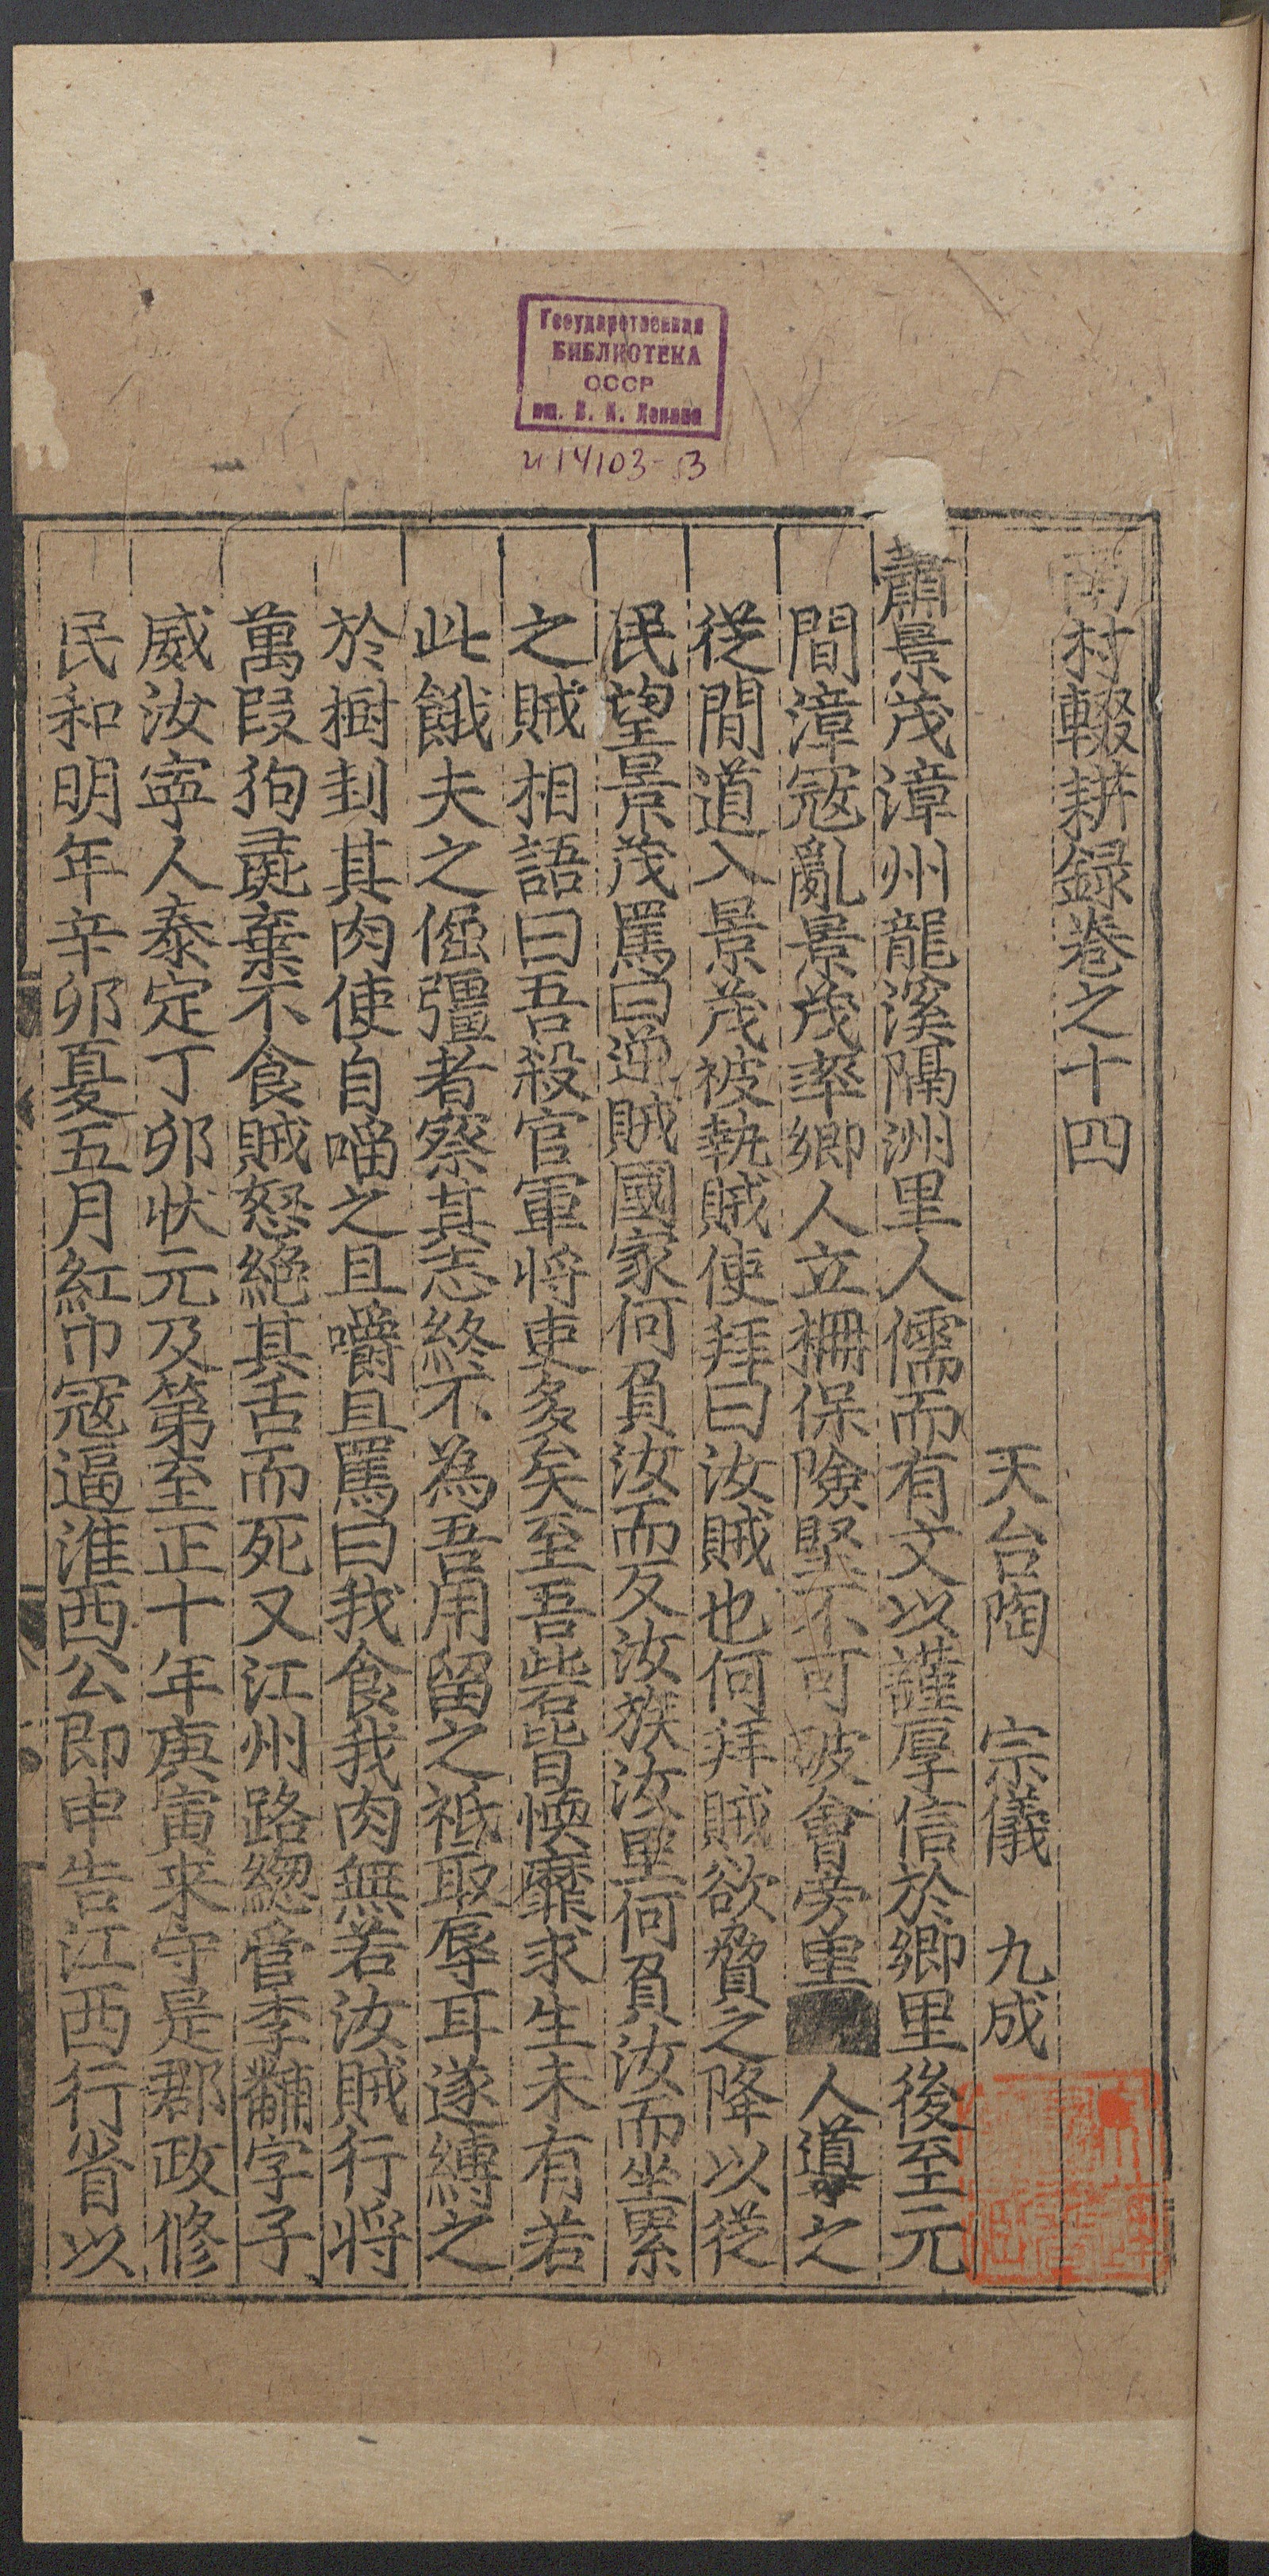 Государственная
БИБЛИОТЕКА
СССР
им. В. И. Ленина
и 14103-53
南村輟耕録卷之十四
天台陶 宗儀 九成
蕭景茂漳州龍溪隔洲里人儒而有文以謹厚信於鄉里後至元
間漳寇亂景茂率鄉人立栅保險堅不可破會旁里 人導之
從間道入景茂被執賊使拜曰汝賊也何拜賊欲脅之降以從
民望景茂罵曰逆賊國家何負汝而反汝族汝里何負汝而坐累
之賊相語曰吾殺官軍将吏多矣至吾砦皆愞靡求生未有若
此餓夫之倔彊者察其志終不為吾用留之祇取辱耳遂縛之
於樹刲其肉使自啗之且嚼且罵曰我食我肉無若汝賊行将
萬段狗彘棄不食賊怒絕其舌而死又江州路緫管李黼字子
威汝寧人泰定丁卯状元及第至正十年庚寅来守是郡政修
民和明年辛卯夏五月紅巾寇逼淮西公即申告江西行省以